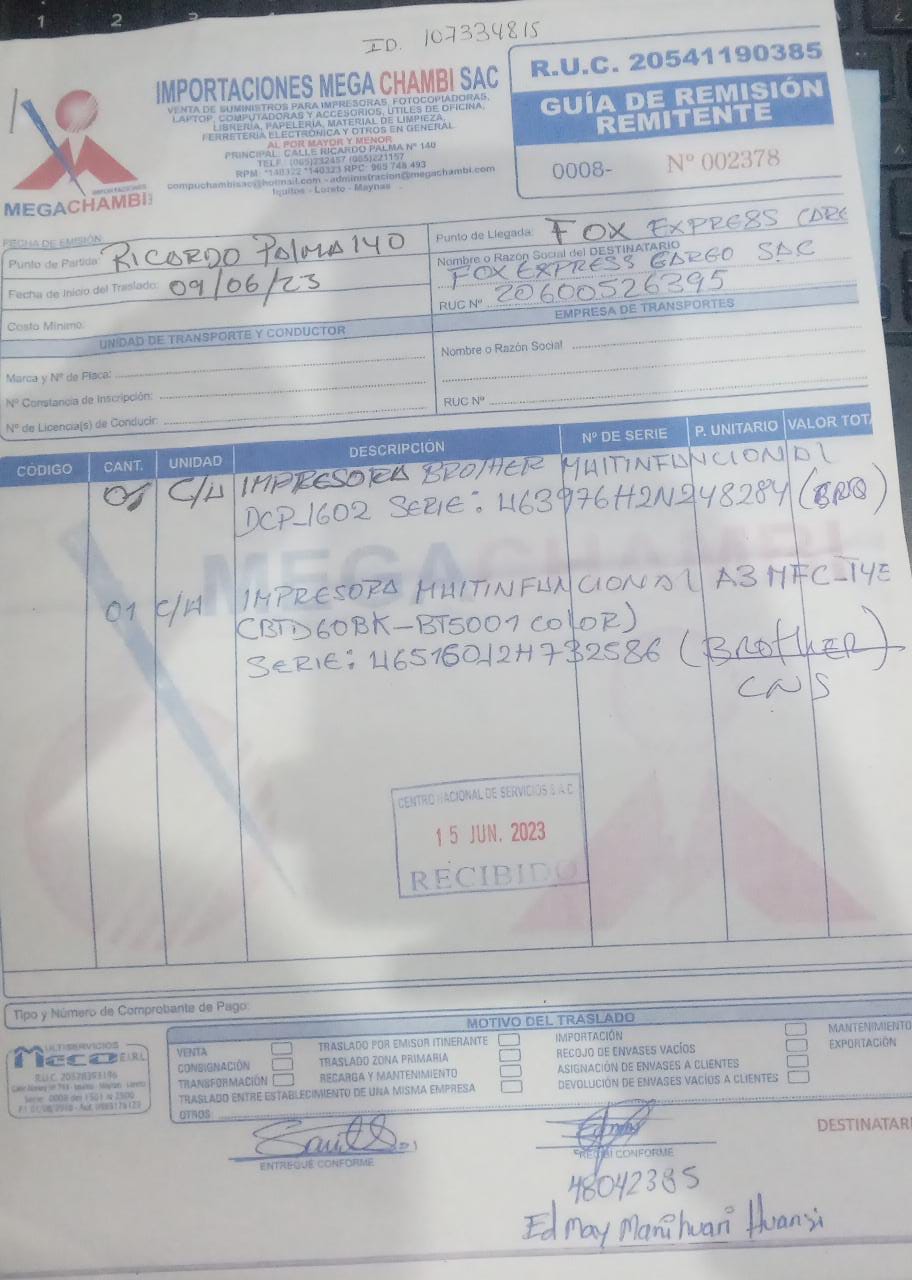 ID. 107334815
IMPORTACIONES MEGA CHAMBI SAC
VENTA DE SUMINISTROS PARA IMPRESORAS, FOTOCOPIADORAS,
LAPTOP, COMPUTADORAS Y ACCESORIOS, UTILES DE OFICINA,
LIBRERIA, PAPELERIA, MATERIAL DE LIMPIEZA,
FERRETERIA ELECTRÓNICA Y OTROS EN GENERAL
AL POR MAYOR Y MENOR
PRINCIPAL: CALLE RICARDO PALMA Nº 140
TELF.: (065)232457 (065)221157
RPM: *140322 *140323 RPC: 965 748 493
compuchambisac@hotmail.com - administracion@megachambi.com
Iquitos - Loreto - Maynas
IMPORTACIONES
MEGACHAMBI
R.U.C. 20541190385
GUÍA DE REMISIÓN
REMITENTE
0008- Nº 002378
FECHA DE EMISIÓN:
Punto de Partida: RICARDO PALMA 140
Fecha de Inicio del Traslado: 09/06/23
Costo Mínimo:
Punto de Llegada: FOX EXPRESS
Nombre o Razón Social del DESTINATARIO
FOX EXPRESS CARGO SAC
RUC Nº 20600526395
UNIDAD DE TRANSPORTE Y CONDUCTOR
Marca y Nº de Placa:
Nº Constancia de Inscripción:
Nº de Licencia(s) de Conducir:
EMPRESA DE TRANSPORTES
Nombre o Razón Social
RUC Nº
CÓDIGO CANT. UNIDAD DESCRIPCIÓN Nº DE SERIE P. UNITARIO VALOR TOT
01 C/U IMPRESORA BROTHER MULTINFUNCIONAL
DCP-1602 SERIE: U63976H2N248284
01 C/U IMPRESORA MULTINFUNCIONAL A3 MFC-T4E
CBTD60BK-BT5001 COLOR)
SERIE: U65160J2H732586 (BROTHER)
CNS
MEGACHAMBI
CENTRO NACIONAL DE SERVICIOS S.A.C.
15 JUN. 2023
RECIBIDO
Tipo y Número de Comprobante de Pago:
MOTIVO DEL TRASLADO
VENTA
CONSIGNACIÓN
TRANSFORMACIÓN
TRASLADO ENTRE ESTABLECIMIENTO DE UNA MISMA EMPRESA
OTROS
TRASLADO POR EMISOR ITINERANTE
TRASLADO ZONA PRIMARIA
RECARGA Y MANTENIMIENTO
IMPORTACIÓN
RECOJO DE ENVASES VACÍOS
ASIGNACIÓN DE ENVASES A CLIENTES
DEVOLUCIÓN DE ENVASES VACÍOS A CLIENTES
MANTENIMIENTO
EXPORTACIÓN
MULTISERVICIOS
MECO E.I.R.L.
ENTREGUE CONFORME
RECIBI CONFORME
DESTINATARI
48042385
Ed May Manihuari Huansi